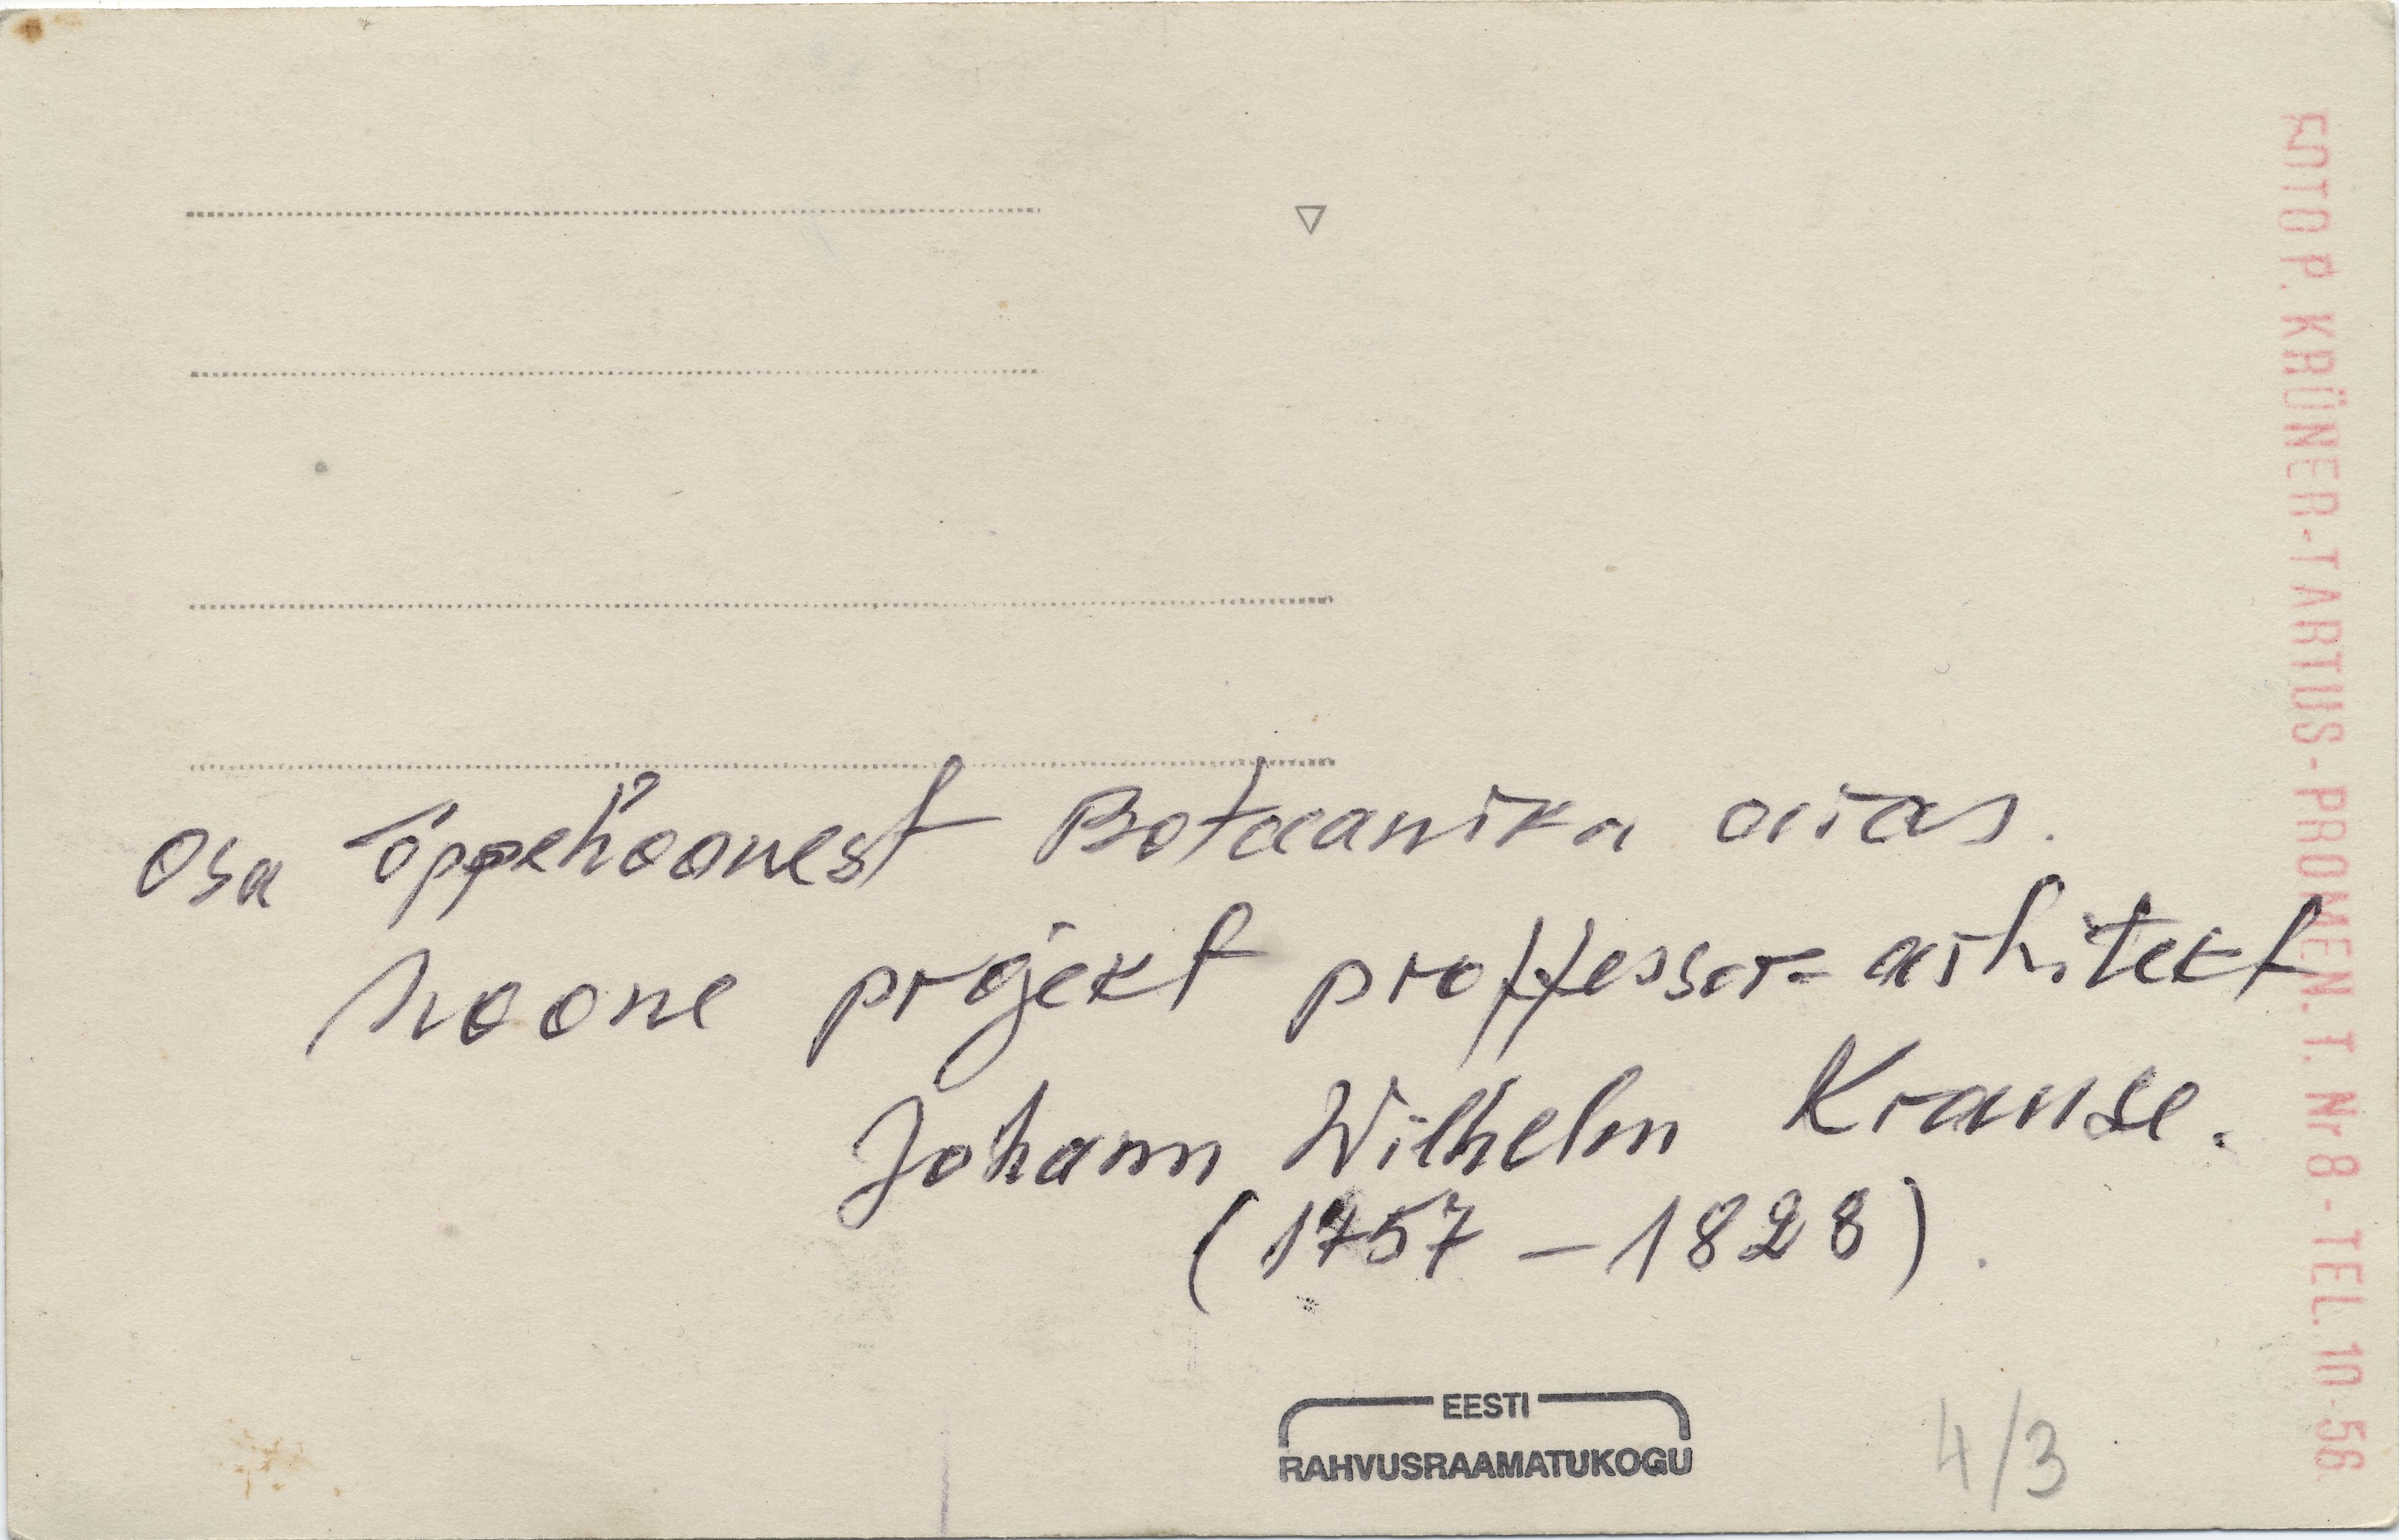 Osa õppehoonest Botaanika aias.
hoone projekt proffessor-arhitekt
Johann Wilhelm Krause.
(1757 – 1828).
EESTI
RAHVUSRAAMATUKOGU
4/3
FOTO P. KRÜNER-TARTUS-PROMEN. T. Nr 8 - TEL. 10-56.